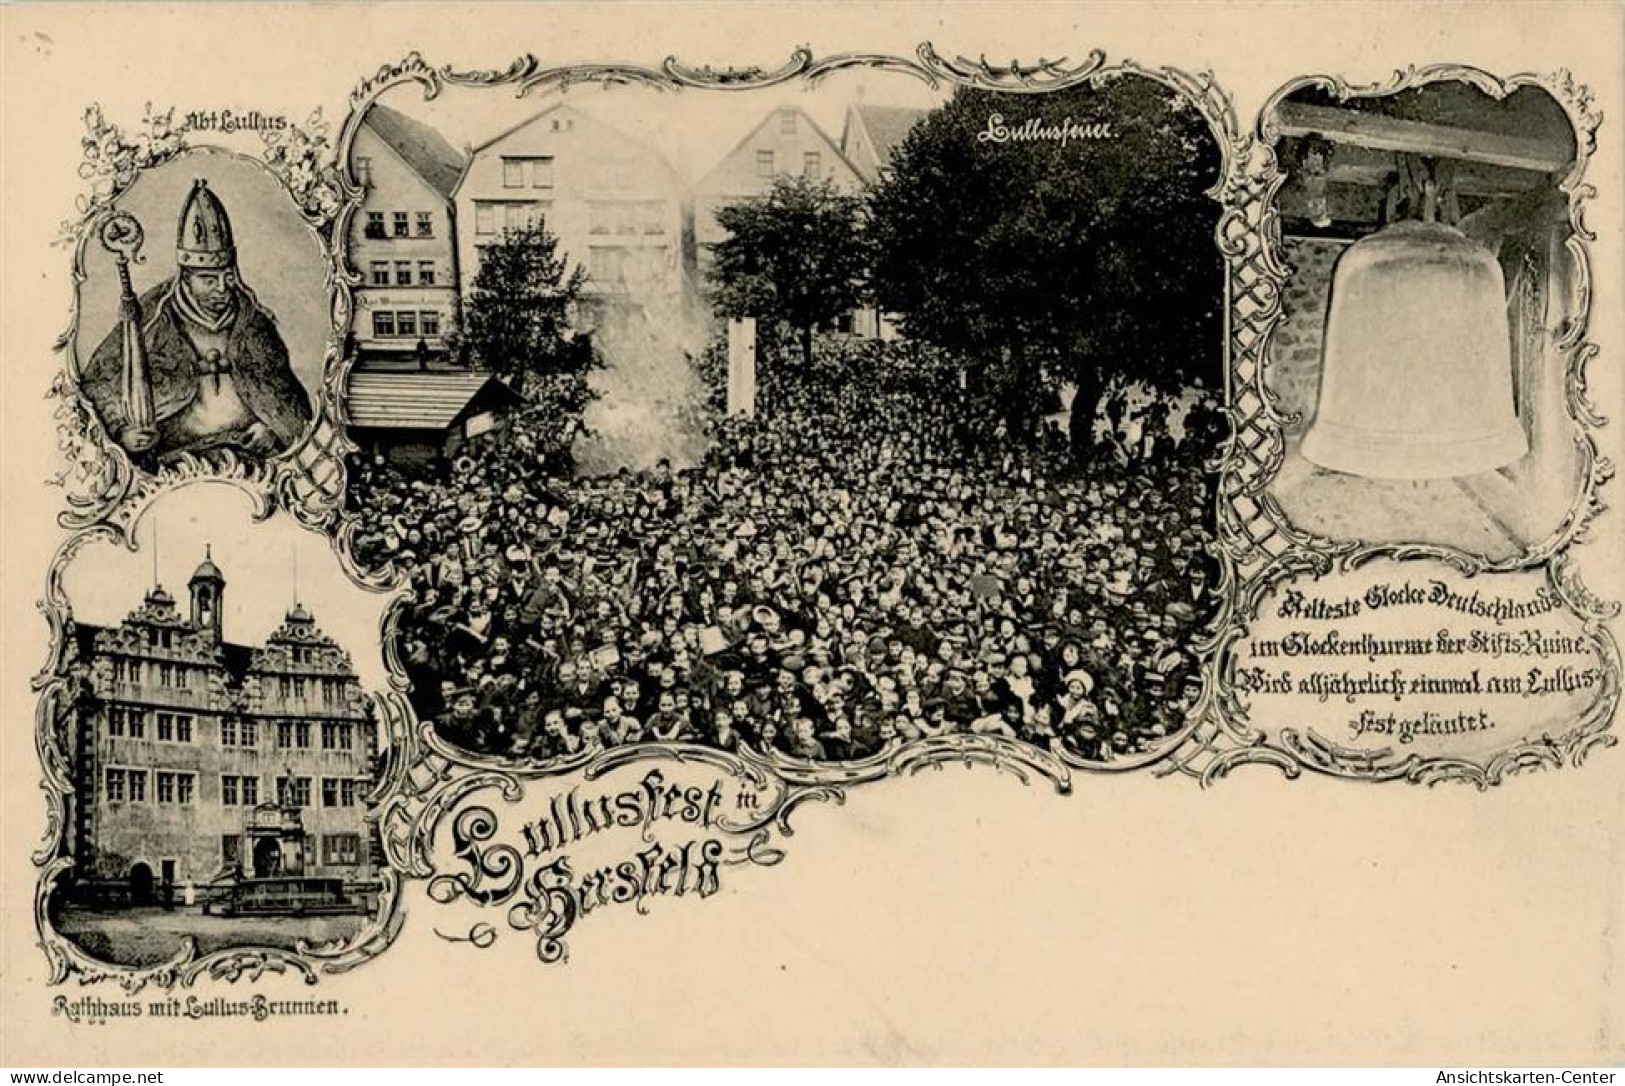 Abt Lullus.
Lullusfeuer.
Aelteste Glocke Deutschlands
im Glockenthurme der Stifts-Ruine.
Wird alljährlich einmal am Lullus-
fest geläutet.
Lullusfest in
Hersfeld
Rathhaus mit Lullus-Brunnen.
delcampe.net
Ansichtskarten-Center